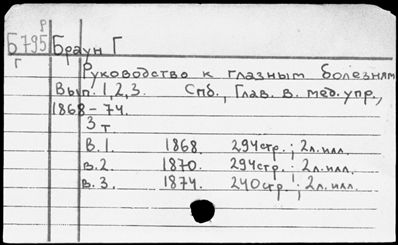 р
Б795 Браун Г
г
Руководство к глазным болезням
Вып. 1, 2, 3. Спб., Глав. в. мед. упр.,
1868 - 74.
3 т
в. 1. 1868. 294стр.; 2л.илл.
в. 2. 1870. 294стр.; 2л.илл.
в. 3. 1874. 240стр.; 2л.илл.